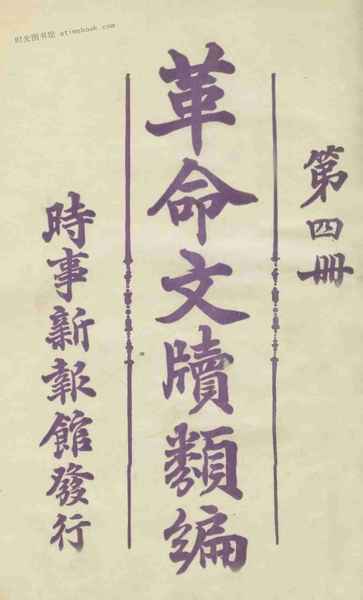 时光图书馆 etimebook.com
第四冊
革命文牘類編
時事新報館發行